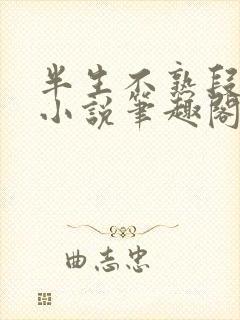 半生不熟段
小說筆趣閣
曲志忠